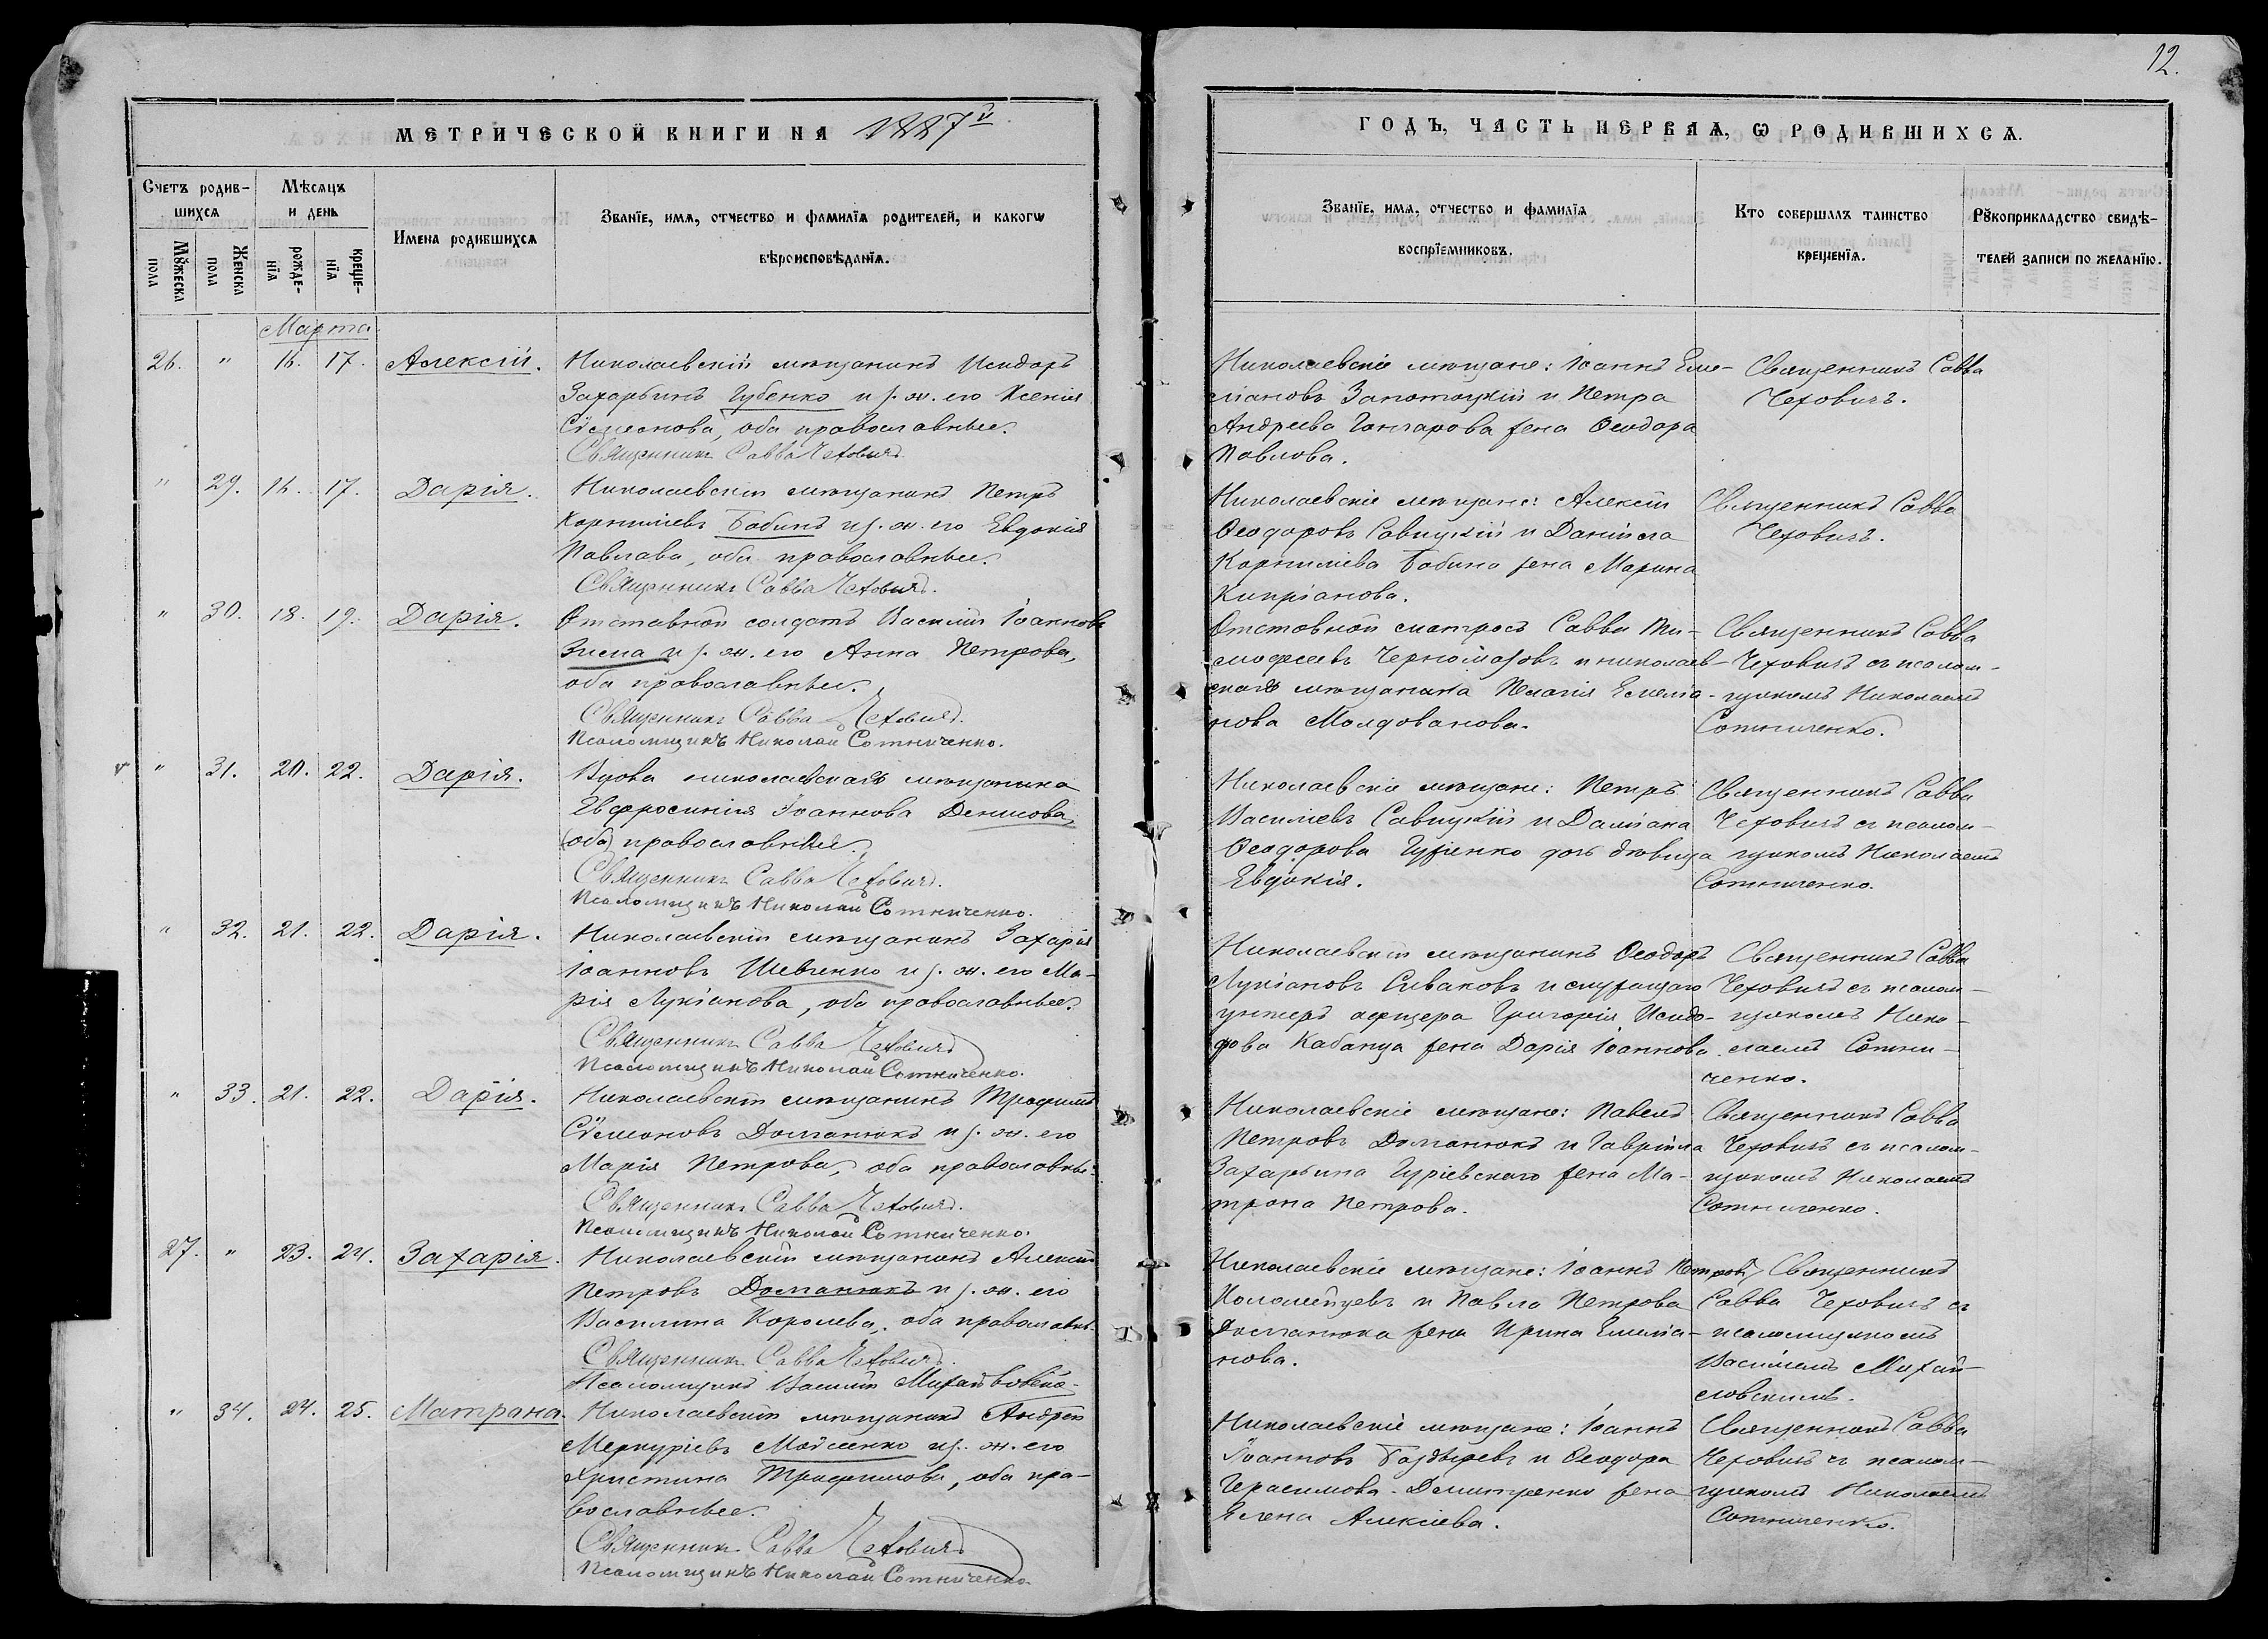 12.
МЕТРИЧЕСКОЙ КНИГИ НА 1887й
Счетъ родив-
шихся
Мꙋжеска
пола
Женска
пола
Мѣсяцъ
и день
рожде-
нїя
креще-
нїя
Имена родившихся
Званїе, имя, отчество и фамилїя родителей, и какогѡ
вѣроисповѣданїя.
ГОДЪ, ЧАСТЬ ПЕРВАЯ, Ѡ РОДИВШИХСЯ.
Званїе, имя, отчество и фамилїя
воспрїемниковъ.
Кто совершалъ таинство
крещенїя.
Рꙋкоприкладство свидѣ-
телей записи по желанїю.
Марта
26. " 16. 17. Алексій.
Николаевскій мѣщанинъ Исидоръ
Захарьинъ Губенко и з. ж. его Ксенія
Сѷмеонова, оба православные.
Священникъ Савва Чеховичъ.
Николаевскіе мѣщане: Іоаннъ Еме-
ліановъ Запотоцкій и Петра
Андреева Гончарова жена Ѳеодора
Павлова.
Священникъ Савва
Чеховичъ.
" 29. 16. 17. Дарія.
Николаевскій мѣщанинъ Петръ
Корниліевъ Бабинъ и з. ж. его Евдокія
Павлава, оба православные.
Священникъ Савва Чеховичъ.
Николаевскіе мѣщане: Алексій
Ѳеодоровъ Савицкій и Даніила
Корниліева Бабина жена Марина
Кипріанова.
Священникъ Савва
Чеховичъ.
" 30. 18. 19. Дарія.
Отставной солдатъ Василій Іоанновъ
Зима и з. ж. его Анна Петрова,
оба православные.
Священникъ Савва Чеховичъ.
Псаломщикъ Николай Сотниченко.
Отставной матросъ Савва Ти-
мофеевъ Черномазовъ и николаев-
ская мѣщанка Пелагія Емеліа-
нова Молдованова.
Священникъ Савва
Чеховичъ съ псалом-
щикомъ Николаемъ
Сотниченко.
" 31. 20. 22. Дарія.
Вдова николаевская мѣщанка
Евфросинія Іоаннова Денисова,
(оба) православные.
Священникъ Савва Чеховичъ.
Псаломщикъ Николай Сотниченко.
Николаевскіе мѣщане: Петръ
Василіевъ Савицкій и Даміана
Ѳеодорова дочь дѣвица
Евдокія.
Священникъ Савва
Чеховичъ съ псалом-
щикомъ Николаемъ
Сотниченко.
" 32. 21. 22. Дарія.
Николаевскій мѣщанинъ Захарія
Іоанновъ Шевченко и з. ж. его Ма-
рія Лукіанова, оба православные.
Священникъ Савва Чеховичъ
Псаломщикъ Николай Сотниченко.
Николаевскій мѣщанинъ Ѳеодоръ
Лукіановъ Сиваковъ и служащаго
унтеръ офицера Григорія Исидо-
рова Кабанца жена Дарія Іоаннова.
Священникъ Савва
Чеховичъ съ псалом-
щикомъ Нико-
лаемъ Сотни-
ченко.
" 33. 21. 22. Дарія.
Николаевскій мѣщанинъ Трофимъ
Сѷмеоновъ Долганюкъ и з. ж. его
Марія Петрова, оба православные.
Священникъ Савва Чеховичъ.
Псаломщикъ Николай Сотниченко.
Николаевскіе мѣщане: Павелъ
Петровъ Долганюкъ и Гавріила
Захарьина Гуріевскаго жена Ма-
трона Петрова.
Священникъ Савва
Чеховичъ съ псалом-
щикомъ Николаемъ
Сотниченко.
27. " 23. 24. Захарія.
Николаевскій мѣщанинъ Алексій
Петровъ Долганюкъ и з. ж. его
Василина Королева, оба православн.
Священникъ Савва Чеховичъ.
Псаломщикъ Василій
Николаевскіе мѣщане: Іоаннъ Петровъ
Коломейцевъ и Павла Петрова
Долганюка жена Ирина Емеліа-
нова.
Священникъ
Савва Чеховичъ съ
псаломщикомъ
Василіемъ Михай-
ловскимъ.
" 34. 24. 25. Матрона.
Николаевскій мѣщанинъ Андрей
Меркуріевъ Мойсенко и з. ж. его
Христина Трофимова, оба пра-
вославные.
Священникъ Савва Чеховичъ
Псаломщикъ Николай Сотниченко.
Николаевскіе мѣщане: Іоаннъ
Іоанновъ Баздыревъ и Ѳеодора
Герасимова Димитренко жена
Елена Алексіева.
Священникъ Савва
Чеховичъ съ псалом-
щикомъ Николаемъ
Сотниченко.